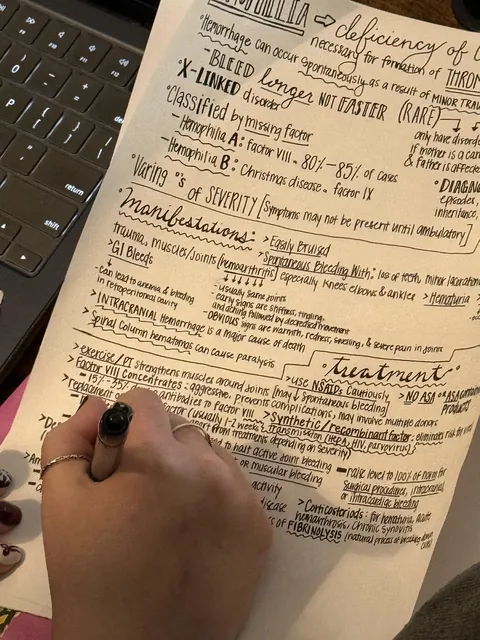 deficiency of
necessary for formation of THROM
Hemorrhage can occur spontaneously as a result of MINOR TRAU
-BLEED longer NOT FASTER (RARE)
X-LINKED disorder
only have disord
if mother is a car
& father is affecte
Classified by missing factor
-Hemophilia A: factor VIII. 80%-85% of cases
-Hemophilia B: Christmas disease, factor IX
*DIAGN
episodes,
inheritance,
Varing °'s of SEVERITY [Symptoms may not be present until ambulatory]
Manifestations:
>Easily Bruised
>Spontaneous Bleeding With: loss of teeth, minor laceration
Trauma, muscles/Joints (hemoarthritis) especially Knees elbows & ankles
>Hematuria
>GI Bleeds
-can lead to anemia & bleeding
in retroperitoneal cavity
-usually same joints
-early signs are stiffness, tingling,
and aching followed by decreased movement
-OBVIOUS signs are warmth, redness, swelling, & severe pain in joints
>INTRACRANIAL Hemorrhage is a major cause of death
>Spinal Column hematomas can cause paralysis
*treatment*
>exercise/PT strengthens muscles around Joints [may ↓ Spontaneous bleeding]
>use NSAIDs Cautiously,
*NO ASA or ASA contain
products
>Factor VIII Concentrates: aggressive, prevents complications, may involve multiple donors
-15%-35%
antibodies to factor VIII
>Synthetic/recombinant factor: eliminates risk for viral
transmission (HEPA, HIV, parvovirus)
factor (usually 1-2 weeks
from treatments depending on severity)
to halt active joint bleeding
or muscular bleeding
-raise level to 100% of norm for
surgical procedures, intracranial,
or intracardiac bleeding
activity
disease
>Corticosteriods: for hematuria, acute
hemarthrosis, Chronic Synovitis
of FIBRINOLYSIS (natural process of breaking down